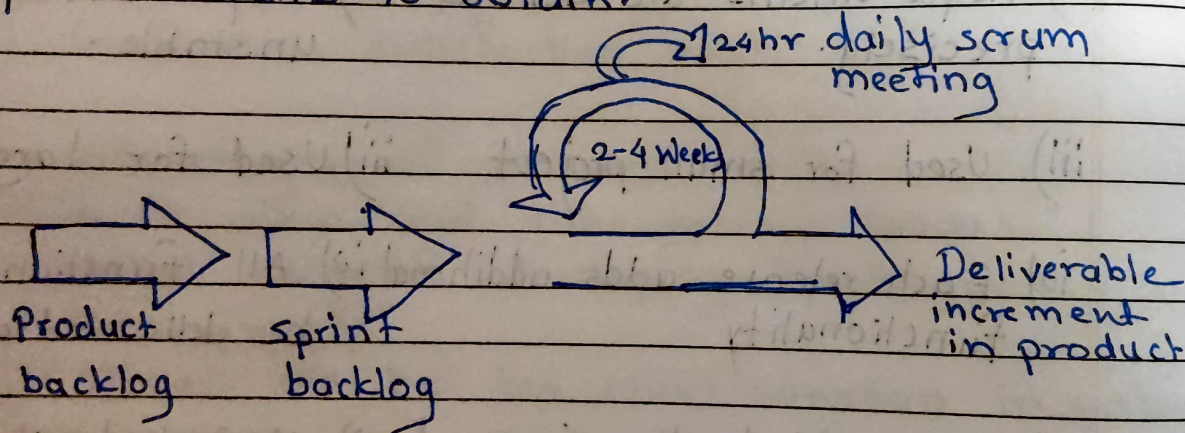 24hr daily scrum
meeting
2-4 Weeks
Product
backlog
Sprint
backlog
Deliverable
increment
in product